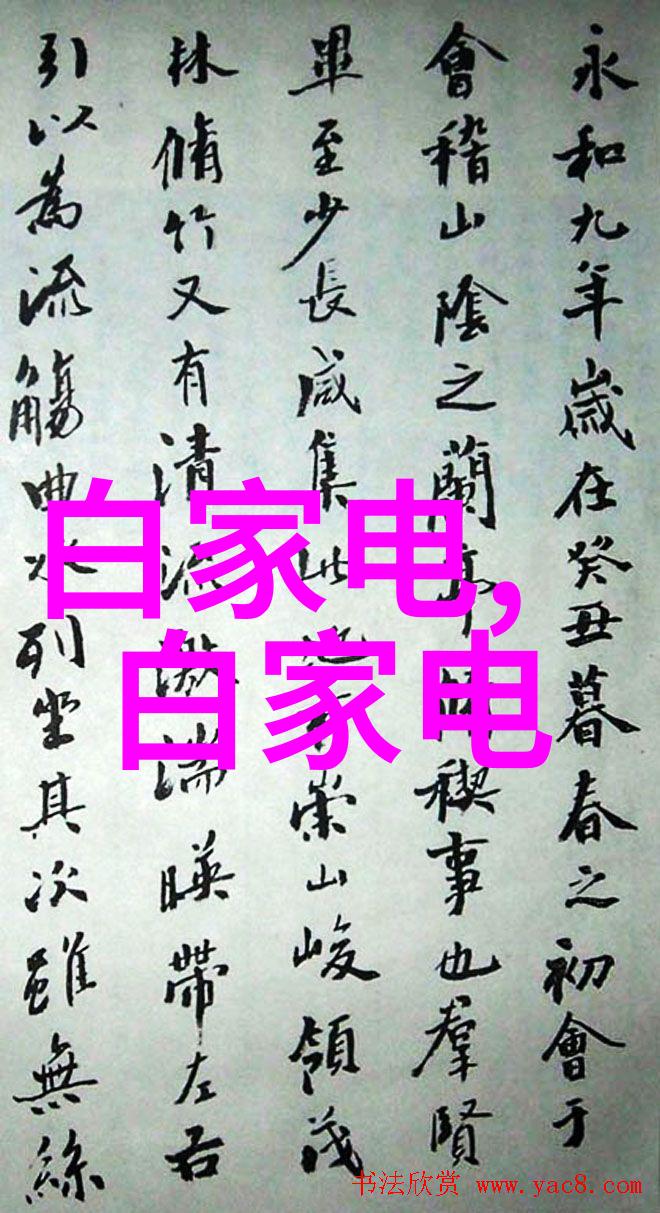 永和九年歲在癸丑暮春之初會于
會稽山陰之蘭亭脩稧事也羣賢
畢至少長咸集此崇山峻領茂
林脩竹又有清流激湍暎帶左右
引以為流觴曲水列坐其次雖無絲
白家电,
白家电
书法欣赏 www.yac8.com